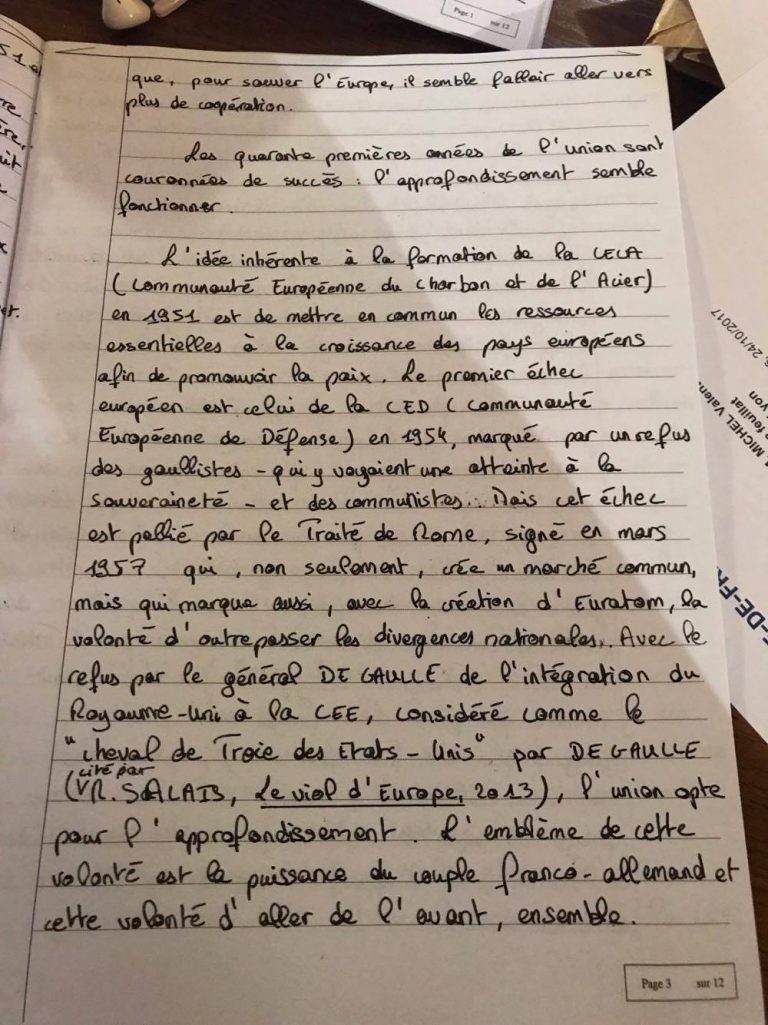 Page 1 sur 12
que, pour sauver l'Europe, il semble falloir aller vers
plus de coopération.
Les quarante premières années de l'union sont
couronnées de succès : l'approfondissement semble
fonctionner.
L'idée inhérente à la formation de la CECA
(Communauté Européenne du Charbon et de l'Acier)
en 1951 est de mettre en commun les ressources
essentielles à la croissance des pays européens
afin de promouvoir la paix. Le premier échec
européen est celui de la CED (Communauté
Européenne de Défense) en 1954, marqué par un refus
des gaullistes - qui y voyaient une atteinte à la
souveraineté - et des communistes. Mais cet échec
est pallié par le Traité de Rome, signé en mars
1957 qui, non seulement, crée un marché commun,
mais qui marque aussi, avec la création d'Euratom, la
volonté d'outrepasser les divergences nationales. Avec le
refus par le général DE GAULLE de l'intégration du
Royaume-Uni à la CEE, considéré comme le
"cheval de Troie des Etats-Unis" par DE GAULLE
(cité par R. SALAIS, Le viol d'Europe, 2013), l'union opte
pour l'approfondissement. L'emblème de cette
volonté est la puissance du couple franco-allemand et
cette volonté d'aller de l'avant, ensemble.
Page 3 sur 12
24/10/2017
MICHEL Valen
feuillat
yon
E-DE-FR